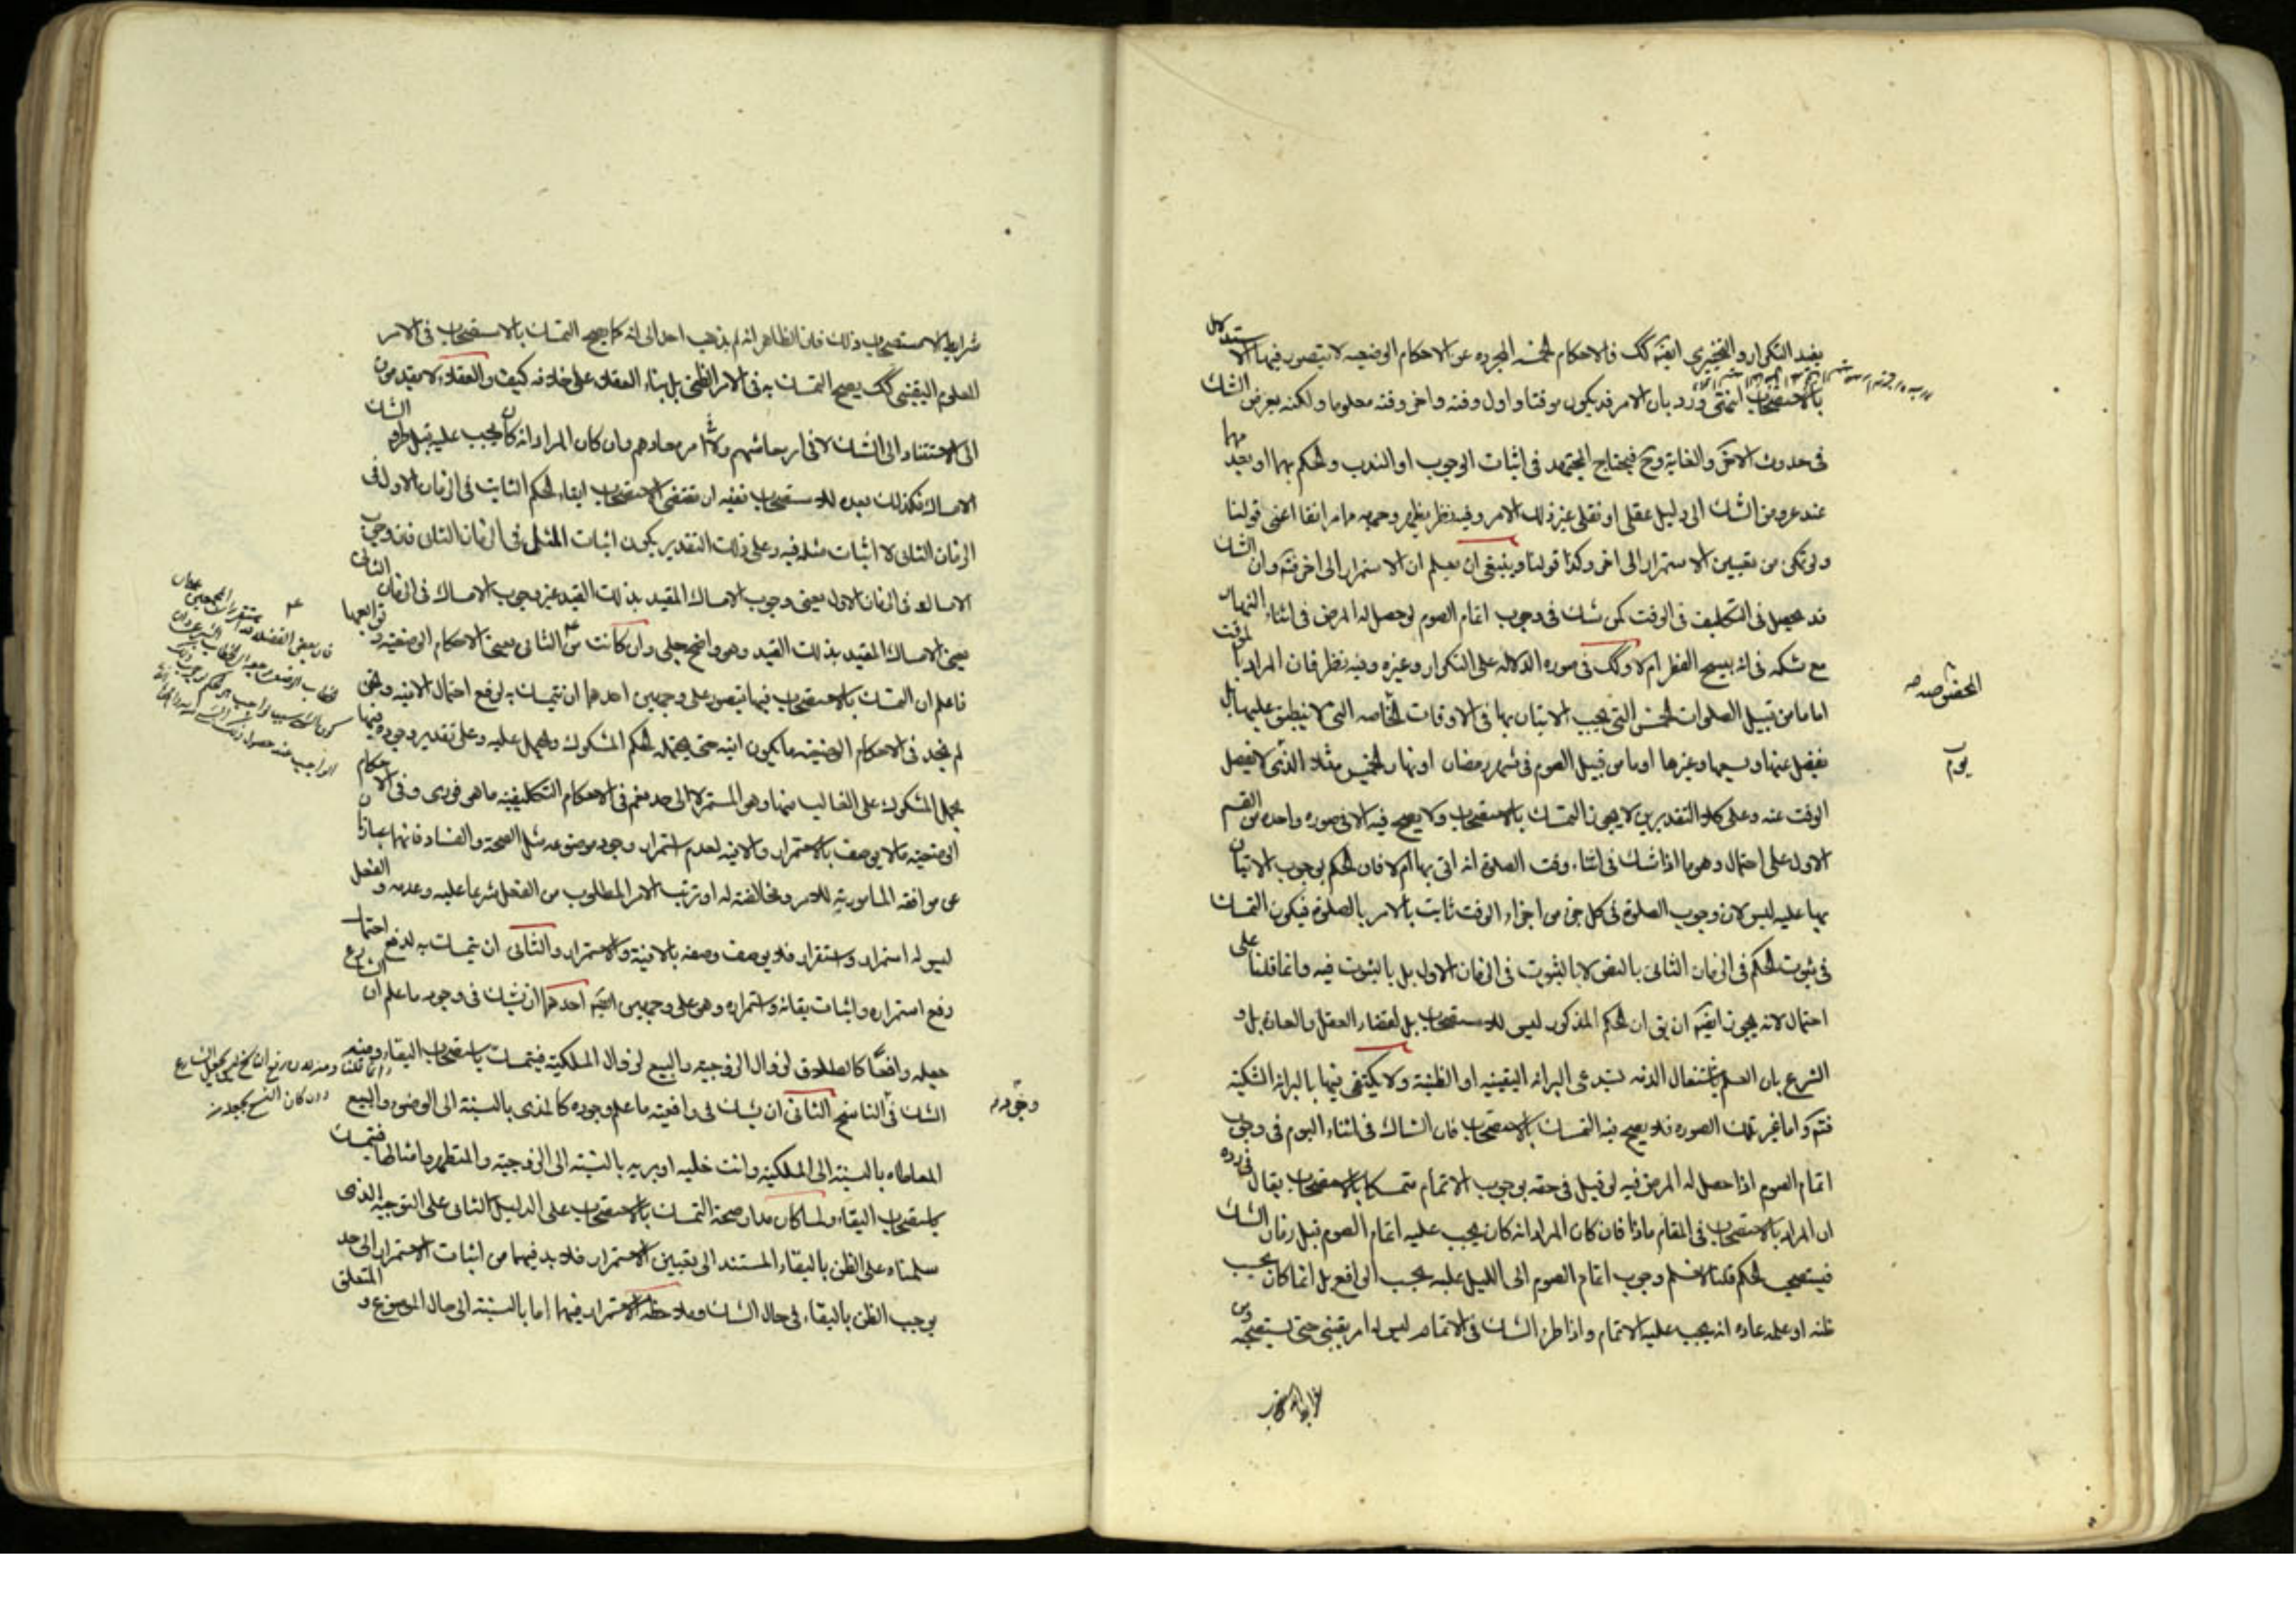 يفيد التكرار والتخييرى ايضا كك فالاحكام الخمسة المجردة عن الاحكام الوضعيه لا يتصور فيها الاستدلال
بالاستصحاب انتهى ورد بان الامر قد يكون موقتا واول وقته واخر وقته معلوما ولكنه يعرض الشك
فى حدوث الاخر والغاية وح فيحتاج المجتهد فى اثبات الوجوب او الندب والحكم بهما او بعدمهما
عند عروض الشك الى دليل عقلى او نقلى غير ذلك الامر وفيه نظر يظهر وجهه مما مر انفا اعنى قولنا
ولو تكى من تعيين الاستمرار الى اخر وكذا قولنا وينبغى ان يعلم ان الاستمرار الى اخره فتم وان الشك
قد يحصل فى التكليف فى الوقت كمن شك فى وجوب اتمام الصوم لو حصل له المرض فى اثناء النهار
مع شكه فى انه يبيح الفطر ام لا وكك فى صورة الدلالة على التكرار وغيره وفيه نظر فان المراد بالموقت
اما ما من قبيل الصلوات الخمس التى يجب الاتيان بها فى الاوقات الخاصه التى لا ينطبق عليها بل
يفضل عنها وسيما وغيرها او ما من قبيل الصوم فى شهر رمضان او نهار الخميس مثلا الذى لا يفضل
الوقت عنه وعلى كلا التقديرين لا يجوز التمسك بالاستصحاب ولا يصح فيه الا فى صورة واحده من القسم
الاول على احتمال وهو ما اذا شك فى اثناء وقت الصلوة انه اتى بها ام لا فان الحكم بوجوب الاتيان
بها عليه ليس لان وجوب الصلوة فى كل جزء من اجزاء الوقت ثابت بالامر بالصلوة فيكون التمسك
فى ثبوت الحكم فى الزمان الثانى بالنص لا بالثبوت فى الزمان الاول بل بالثبوت فيه وانما قلنا على
احتمال لانه يجوز ايضا ان يق ان الحكم المذكور ليس للاستصحاب بل لقضاء العقل والعادة بل و
الشرع بان العلم باشتغال الذمه يستدعى البرائه اليقينيه او الظنية ولا يكتفى فيها بالبرائه الشكيه
فتم واما غير تلك الصوره فلا يصح فيه التمسك بالاستصحاب فان الشاك فى اثناء اليوم فى وجوب
اتمام الصوم اذا حصل له المرض فيه لو قيل فى حقه بوجوب الاتمام متمسكا بالاستصحاب يقال فى رده
ان المراد بالاستصحاب فى المقام ماذا فان كان المراد انه كان يجب عليه اتمام الصوم قبل زمان الشك
فيستصحب الحكم قلنا لا نسلم وجوب اتمام الصوم الى الليل عليه بحسب الواقع بل انما كان بحسب
ظنه او علمه عادة انه يجب عليه الاتمام واذا طرء الشك فى الاتمام ليس له امر يقينى حتى يستصحبه ومن
المخصوصه صه
يوم
شرايط الاستصحاب ذلك فان الظاهر انه لم يذهب احد الى انه كما صح التمسك بالاستصحاب فى الامر
المعلوم اليقينى كك يصح التمسك به فى الامر الظنى بل بناء العقلاء على خلافه كيف والعقلاء لا يقدمون
الى الاستناد الى الشك لا فى امر معاشهم ولا فى امر معادهم وان كان المراد انه كان يجب عليه قبل طرو الشك
الامساك فكذلك بعده للاستصحاب نفيه ان مقتضى الاستصحاب ابقاء الحكم الثابت فى الزمان الاول فى
الزمان الثانى لا اثبات مثله فيه وعلى ذلك التقدير يكون اثبات المثل فى الزمان الثانى فان وجوب
الامساك فى الزمان الاول يعنى وجوب الامساك المقيد بذلك القيد غير وجوب الامساك فى الزمان الثانى
يعنى الامساك المقيد بذلك القيد وهو واضح جلى وان كانت من الثانى يعنى الاحكام الوضعيه وتوابعها
فاعلم ان التمسك بالاستصحاب فيها يتصور على وجهين احدهما ان يتمسك به لرفع احتمال الانيه ونحن
لم نجد فى الاحكام الوضعيه ما يكون انيه حتى يحتمله الحكم المشكوك ويحمل عليه وعلى تقدير وجوده فيها
يحمل المشكوك على الغالب منها وهو المستمر الى حد نعم فى الاحكام التكليفيه ما هى فورى وفى الاحكام
الوضعيه ما لا يوصف بالاستمرار والانيه لعدم استمرار وجود موضوعه مثل الصحة والفساد فانهما عبارتان
عن موافقه المامور به للامر ومخالفته له او ترتب الاثر المطلوب من الفعل شرعا عليه وعدمه والفعل
ليس له استمرار واستقرار فلا يوصف وصفه بالانية والاستمرار والثانى ان يتمسك به لدفع احتمال
رفع استمراره واثبات بقائه واستمراره وهو على وجهين ايضا احدهما ان يشك فى وجود ما علم ان الشارع
جعله رافعا كالطلاق لزوال الزوجيه والبيع لزوال الملكية فيتمسك باستصحاب البقاء ومنه
الشك فى الناسخ الثانى ان يشك فى رافعيته ما علم وجوده كالمذى بالنسبة الى الوضوء والبيع
المعاطاه بالنسبة الى الملكية وانت خليه او بريه بالنسبه الى الزوجية والمتطهر وامثالها فيتمسك
باستصحاب البقاء ولما كان مدار صحة التمسك بالاستصحاب على الدليل الثانى على التوجيه الذى
سلمناه على الظن بالبقاء المستند الى تعيين الاستمرار فلا بد فيهما من اثبات الاستمرار الى حد
يوجب الظن بالبقاء فى حال الشك وملاحظه الاستمرار فيهما اما بالنسبة الى حال الموضوع والمتعلق